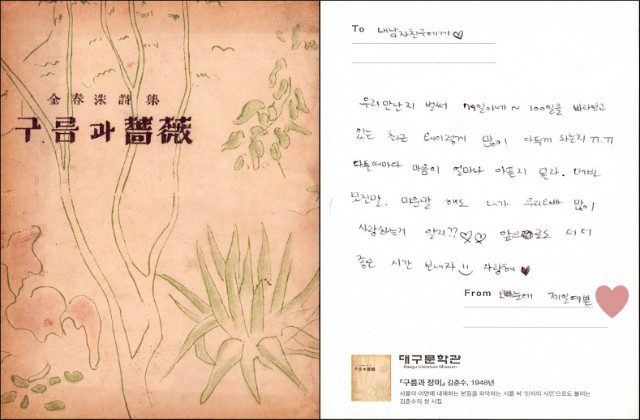 金春洙詩集
구름과 薔薇
To 내남자친구에게♡
우리 만난지 벌써 79일이네~ 100일을 바라보고
있는 최근 왜이렇게 많이 다투게 되는지 ㅠㅠ
다툴때마다 마음이 얼마나 아픈지 몰라. 매번
모진말, 미운말 해도 내가 우리오빠 많이
사랑하는거 알지?? ♡♡ 앞으로도 더 더
좋은 시간 보내자 사랑해 ♥
From 눈에 제일예쁜
대구문학관
Daegu Literature Museum
『구름과 장미』 김춘수, 1948년
사물의 이면에 내재하는 본질을 파악하는 시를 써 '인식의 시인'으로도 불리는
김춘수의 첫 시집